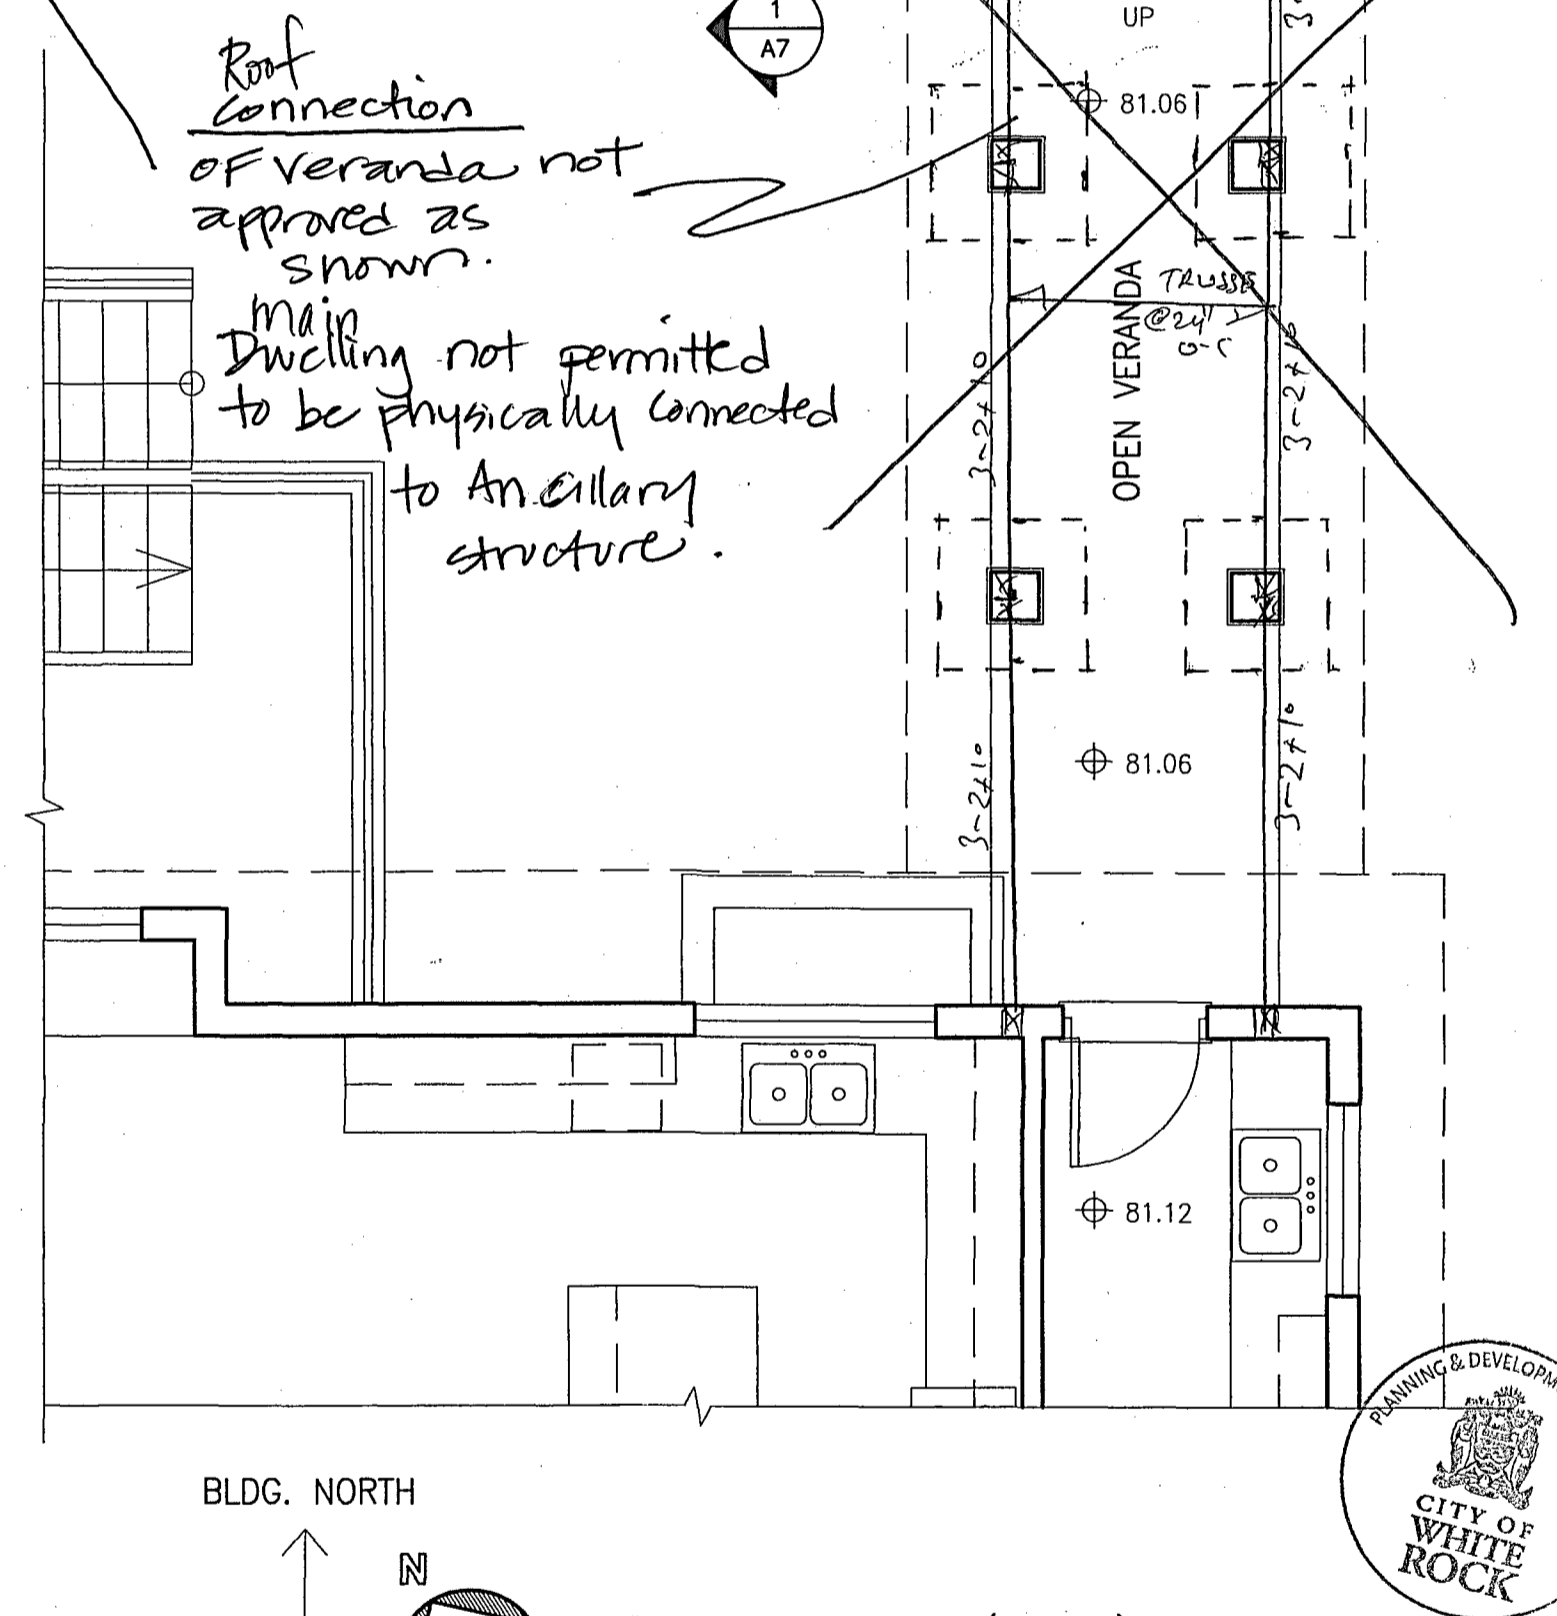 1
A7
UP
3-
Roof
Connection
OF Veranda not
approved as
shown.
main
Dwelling not permitted
to be physically connected
to Ancillary
structure.
81.06
TRUSSE
@24"
O-C
OPEN VERANDA
3-2x10
3-2x10
81.06
3-2x10
3-2x10
81.12
BLDG. NORTH
N
PLANNING & DEVELOPM
CITY OF
WHITE
ROCK